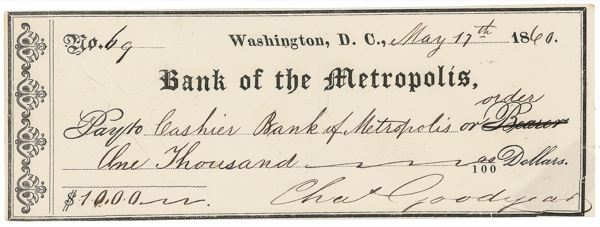 No. 69 Washington, D. C., May 17th 1860.
Bank of the Metropolis,
order
Pay to Cashier Bank of Metropolis or Bearer
One Thousand 00/100 Dollars.
$1000 Chas Goodyear